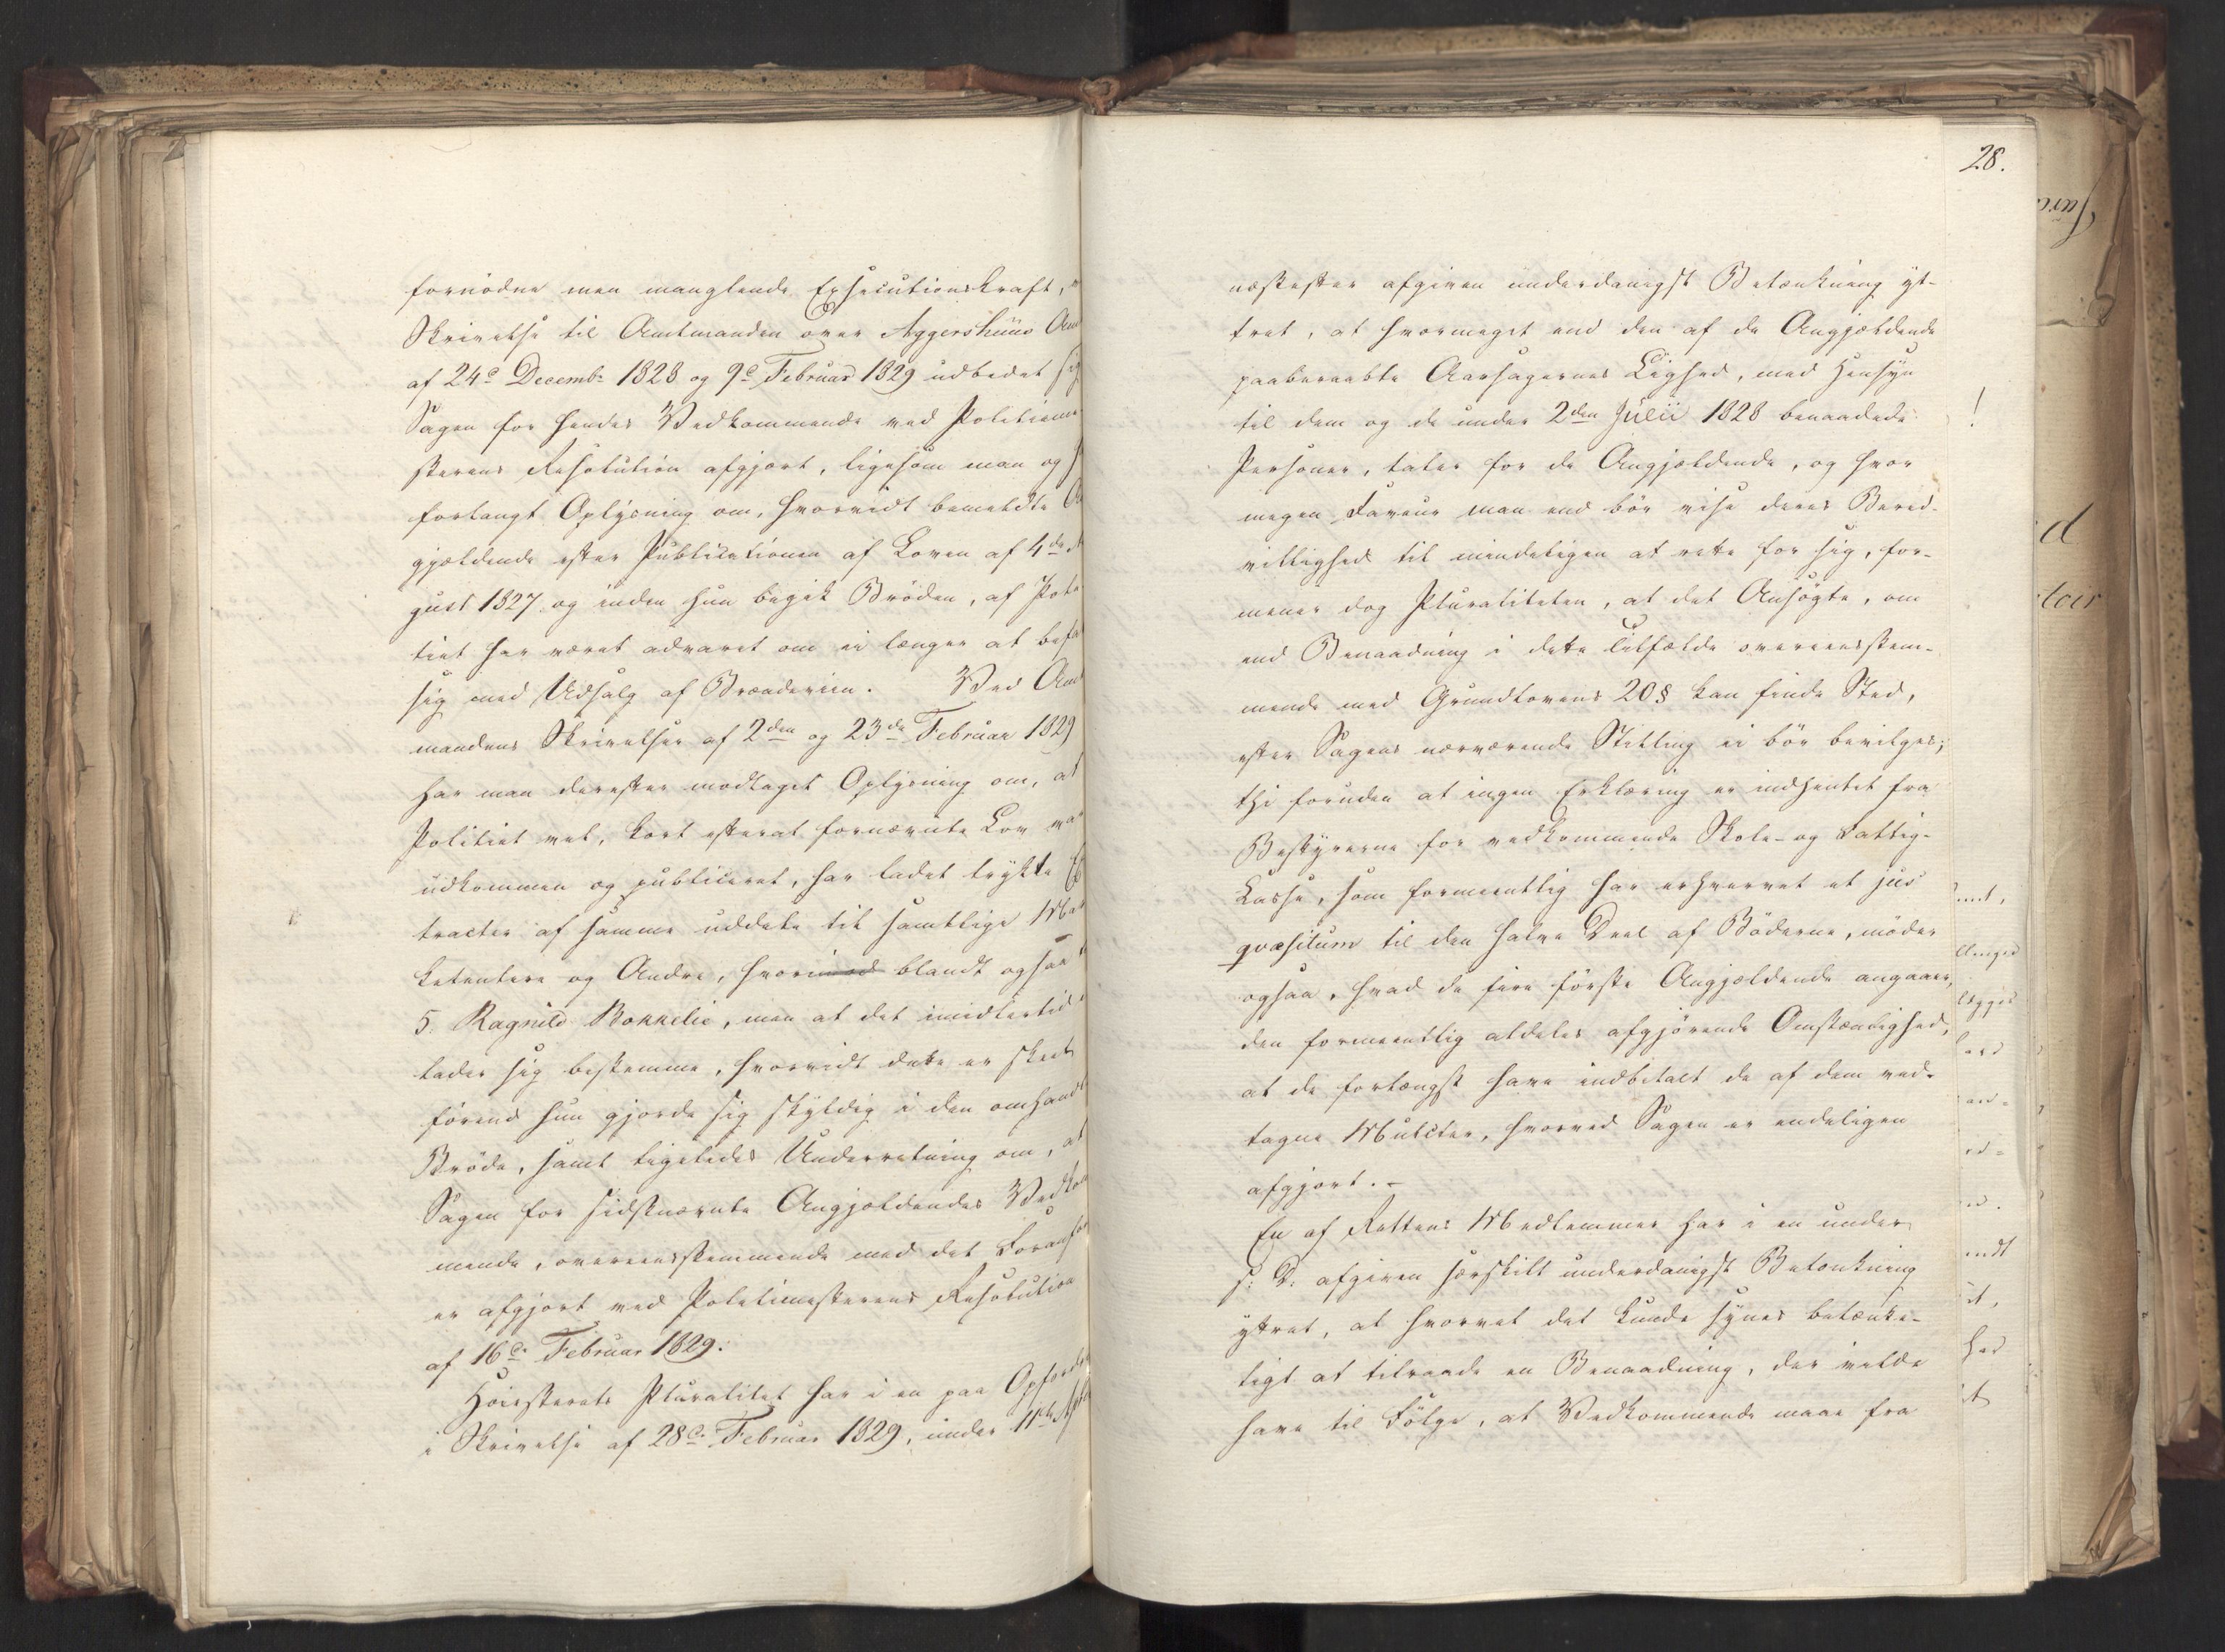 fornödne men manglende Exsecutionskraft,
Skrivelse til Amtmanden over Aggershuus Am
af 24de Decembr 1828 og 9de Februar 1829 udbedet sig
Sagen for hendes Vedkommende ved Politieme-
sterens Resolution afgjort, ligesom man og
forlangt Oplysning om, hvorvidt bemeldte
gjældende efter Publicationen af Loven af 4de
gust 1827 og inden hun begik Bröden, af Poli
tiet har været advaret om ei længer at befa
sig med Udsalg af Brændeviin. Ved Amt
mandens Skrivelser af 2den og 23de Februar 1829
har man derefter modtaget Oplysning om, at
Politiet vel, kort efterat fornævnte Lov var
udkommen og publiceret, har ladet trykte Ex
tracter af samme uddele til samtlige Mar
ketentere og Andre, hvoriimod blandt ogsaa
5. Ragnild Bakkelie, men at det imidlertid
lader sig bestemme, hvorvidt dette er skeet
förend hun gjorde sig skyldig i den omhand
Bröde, samt ligeledes Underretning om, at
Sagen for sidstnævnte Angjældendes Vedkom
mende, overeensstemmende med det Foranför
er afgjort ved Politiemesterens Resolution
af 16de Februar 1829.
Höiesterets Pluralitet har i en paa Opfordr
i Skrivelse af 28de Februar 1829, under 11te Apr
28.
næstefter afgiven underdanigst Betænkning yt-
tret, at hvormeget end den af de Angjældende
paaberaabte Aarsagernes Lighed, med Hensyn
til dem og de under 2den Julii 1828 benaadede !
Personer, taler for de Angjældende, og hvor
megen Faveur man end bör vise deres Bered-
villighed til mindeligen at rette for sig, for-
mener dog Pluraliteten, at det Ansögte, om
end Benaadning i dette Tilfælde overeensstem-
mende med Grundlovens 20 § kan finde Sted,
efter Sagens nærværende Stilling ei bör bevilges;
thi foruden at ingen Erklæring er indhentet fra
Bestyrerne for vedkommende Skole- og Fattig-
Kasse, som formeentlig har erhvervet et jus
qvæsitum til den halve Deel af Böderne, möder
ogsaa, hvad de fire förste Angjældende angaaer,
den formeentlig aldeles afgjörende Omstændighed,
at de forlængst have indbetalt de af dem ved-
tagne Mulcter, hvorved Sagen er endeligen
afgjort. -
En af Rettens Medlemmer har i en under
s: D: afgiven særskilt underdanigst Betænkning
yttret, at hvorvel det kunde synes betænke-
ligt at tilraade en Benaadning, der vilde
have til Fölge, at Vedkommende maae fra